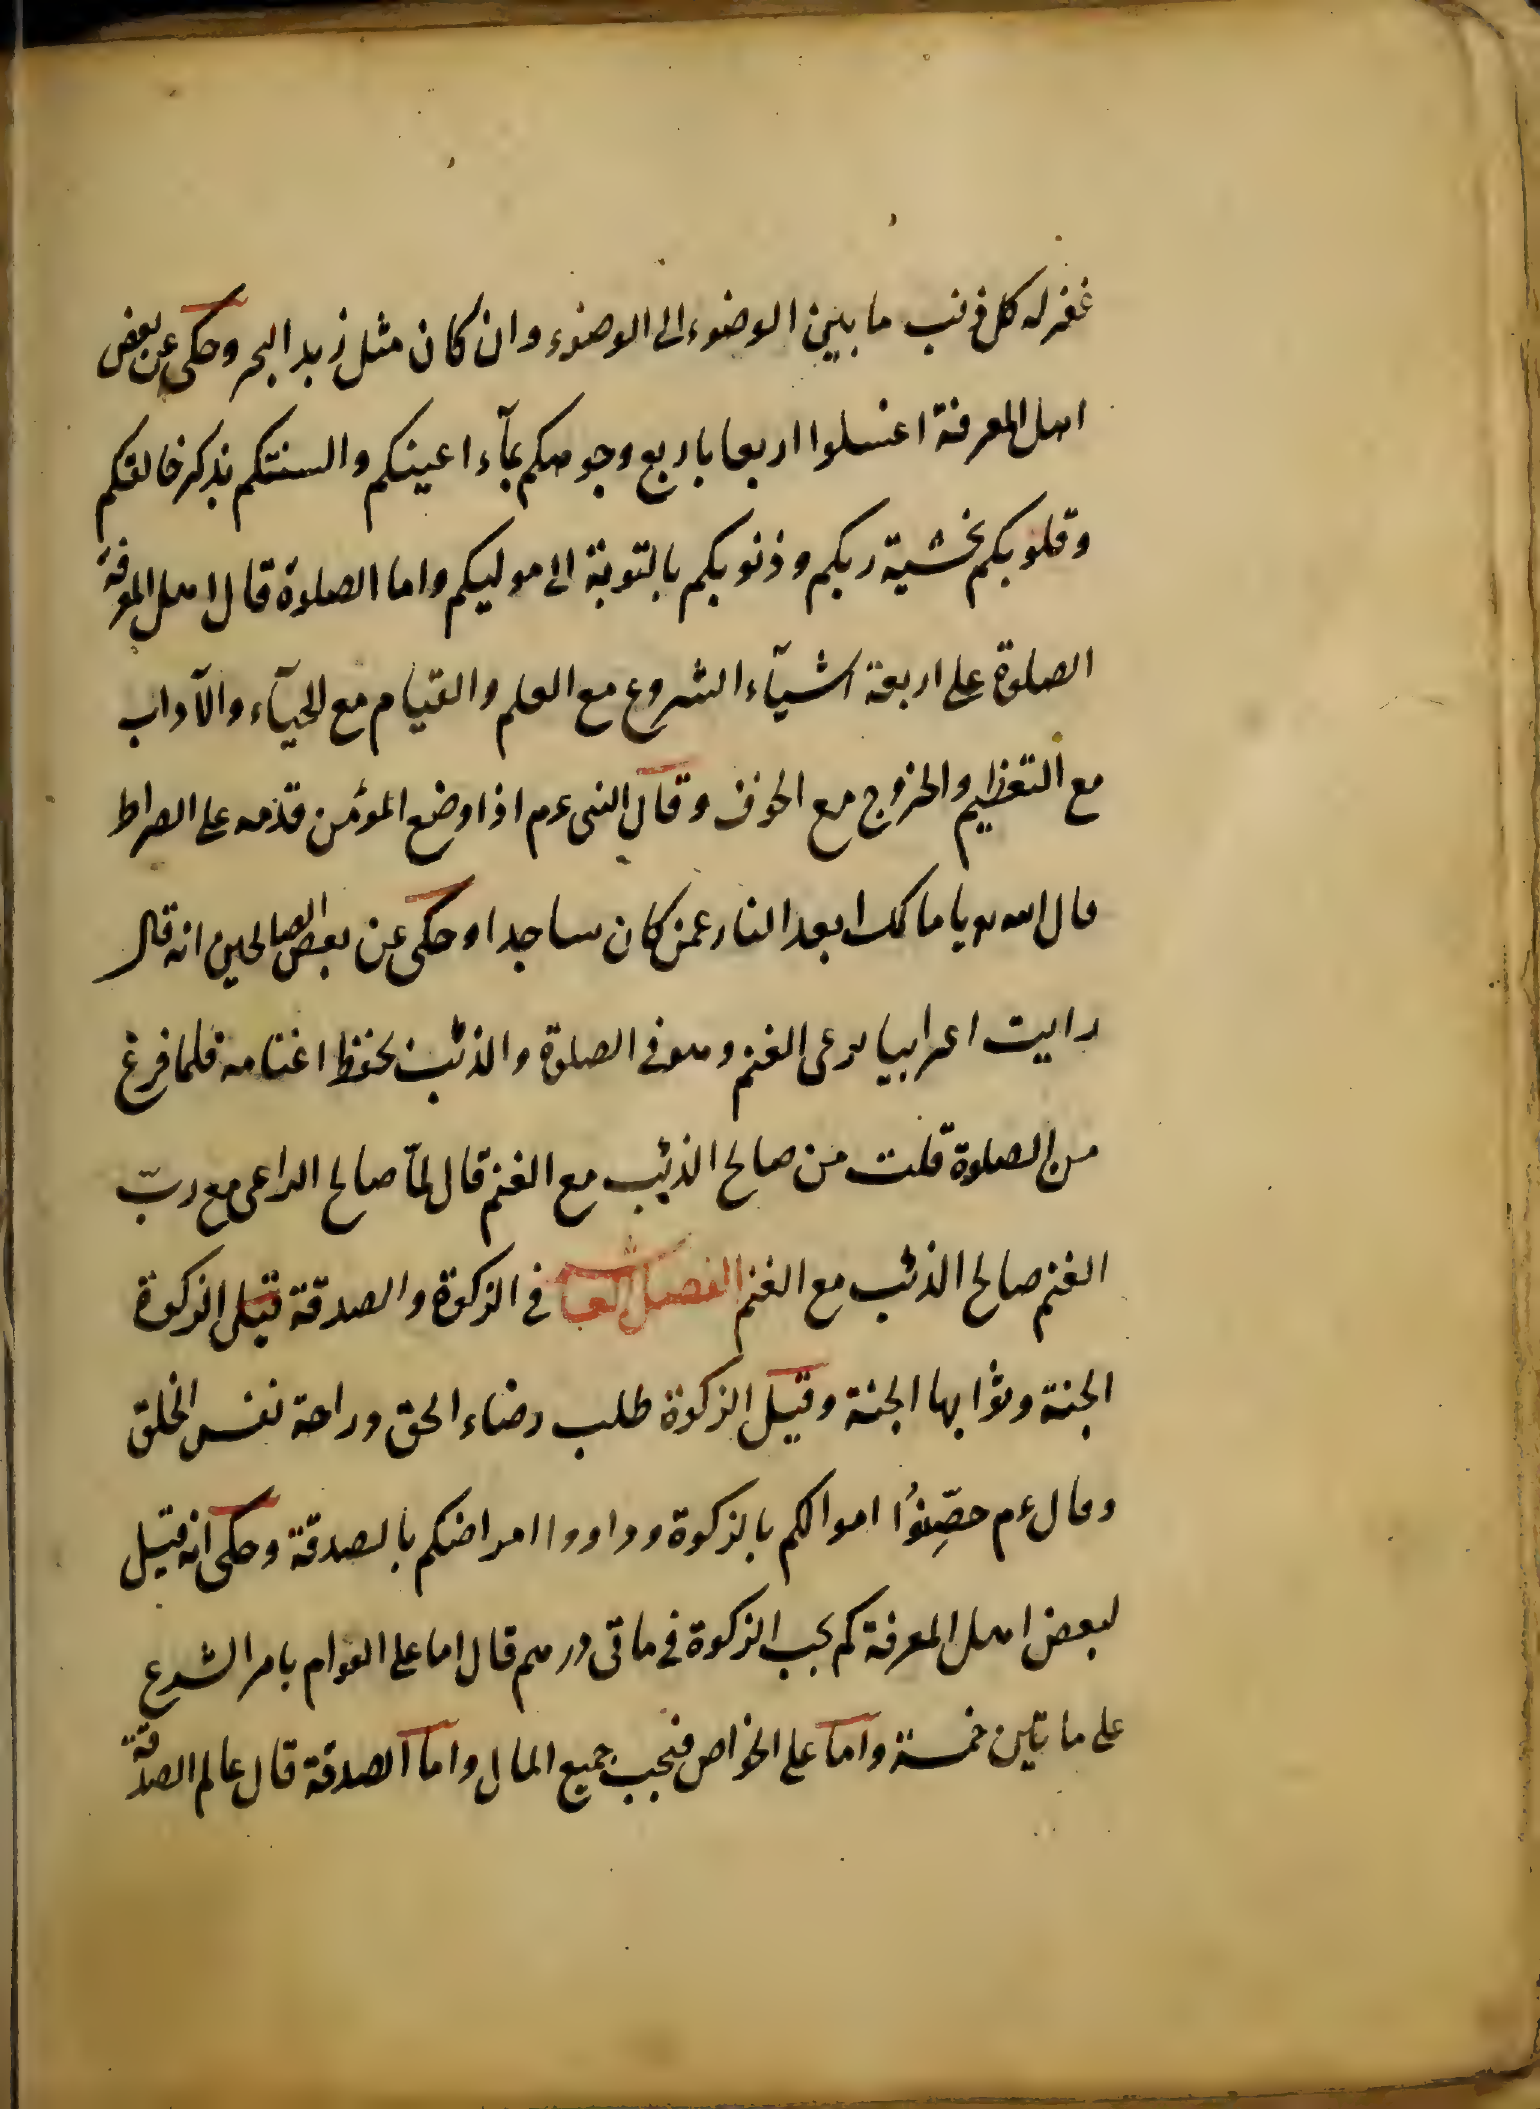 غفر له كل ذنب ما بين الوضوء الى الوضوء وان كان مثل زبد البحر وحكى عن بعض
اهل المعرفة اغسلوا اربعا باربع وجوهكم بمآء اعينكم والسنتكم بذكر خالقكم
وقلوبكم بخشية ربكم وذنوبكم بالتوبة الى موليكم واما الصلوة قال اهل المعرفة
الصلوة على اربعة اشيآء الشروع مع العلم والقيام مع الحيآء والآداب
مع التعظيم والخروج مع الخوف وقال النبى عم اذا وضع المؤمن قدمه على الصراط
قال الله يا مالك ابعد النار عمن كان ساجدا وحكى عن بعض الصالحين انه قال
رايت اعرابيا يرعى الغنم وهو فى الصلوة والذئب يحفظ اغنامه فلما فرغ
من الصلوة قلت من صالح الذئب مع الغنم قال لمّا صالح الراعى مع ربّ
الغنم صالح الذئب مع الغنم الفصل فى الزكوة والصدقة قيل الزكوة
الجنة وثوابها الجنة وقيل الزكوة طلب رضاء الحق وراحة نفس الخلق
وقال عم حصِّنوُا اموالكم بالزكوة وداووا امراضكم بالصدقة وحكى انه قيل
لبعض اهل المعرفة كم يجب الزكوة فى ماتى درهم قال اما على العوام بامر الشرع
على ماتين خمسة واما على الخواص فيجب جميع المال واما الصدقة قال عالم الصدقة